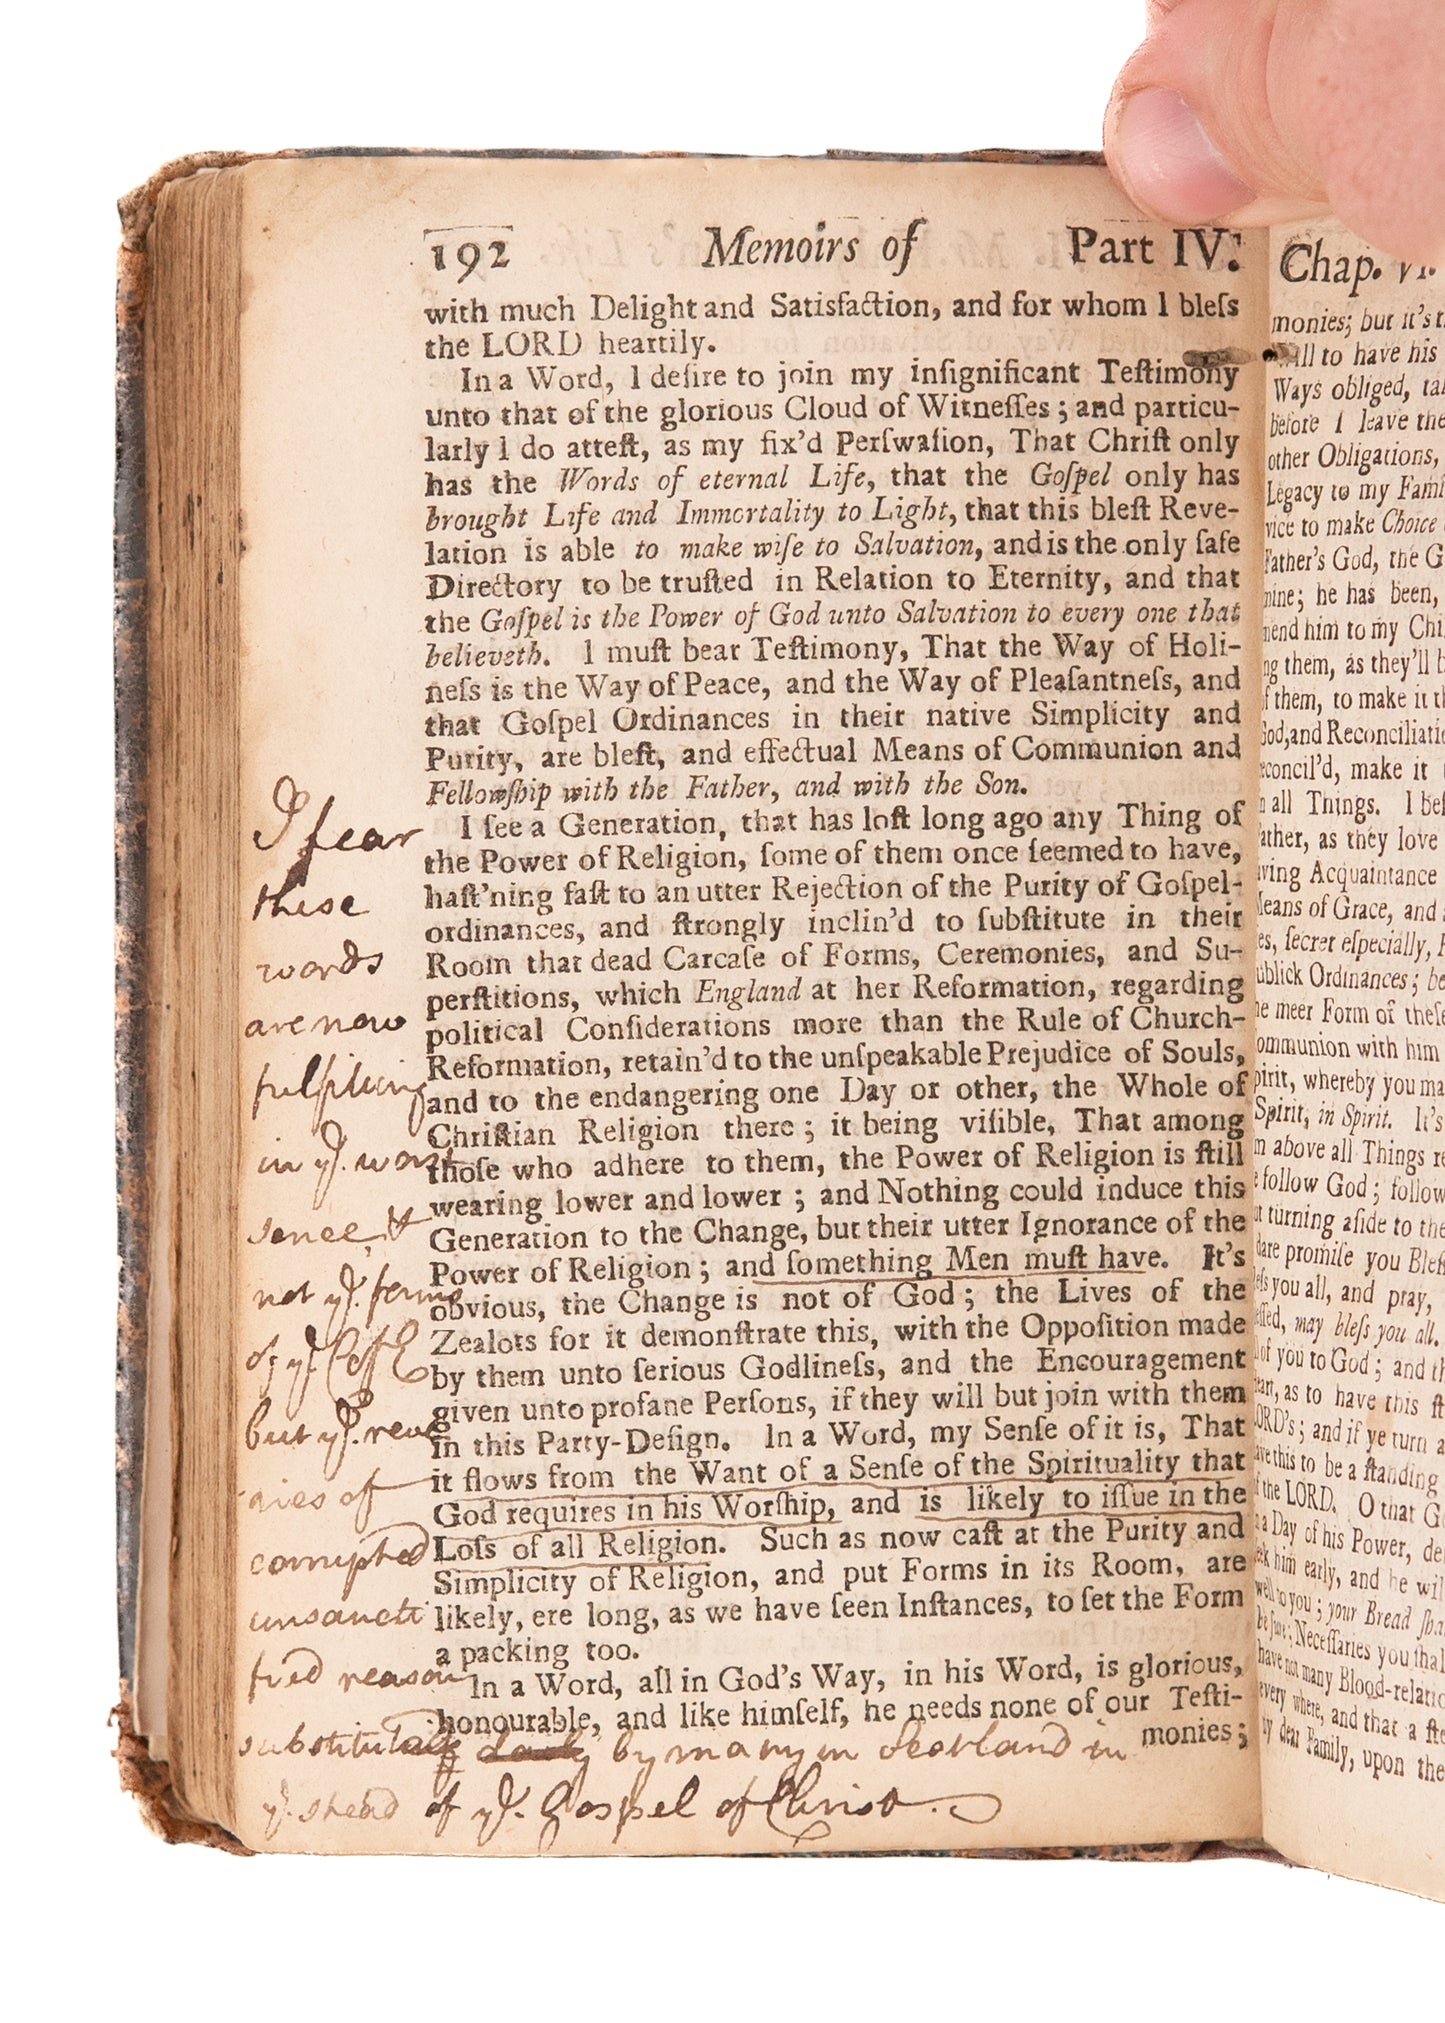 192 Memoirs of Part IV.
with much Delight and Satisfaction, and for whom I bleſs
the LORD heartily.
In a Word, I deſire to join my inſignificant Teſtimony
unto that of the glorious Cloud of Witneſſes; and particu-
larly I do atteſt, as my fix'd Perſwaſion, That Chriſt only
has the Words of eternal Life, that the Goſpel only has
brought Life and Immortality to Light, that this bleſt Reve-
lation is able to make wiſe to Salvation, and is the only ſafe
Directory to be truſted in Relation to Eternity, and that
the Goſpel is the Power of God unto Salvation to every one that
believeth. I muſt bear Teſtimony, That the Way of Holi-
neſs is the Way of Peace, and the Way of Pleaſantneſs, and
that Goſpel Ordinances in their native Simplicity and
Purity, are bleſt, and effectual Means of Communion and
Fellowſhip with the Father, and with the Son.
I ſee a Generation, that has loſt long ago any Thing of
the Power of Religion, ſome of them once ſeemed to have,
haſt'ning faſt to an utter Rejection of the Purity of Goſpel-
ordinances, and ſtrongly inclin'd to ſubſtitute in their
Room that dead Carcaſe of Forms, Ceremonies, and Su-
perſtitions, which England at her Reformation, regarding
political Conſiderations more than the Rule of Church-
Reformation, retain'd to the unſpeakable Prejudice of Souls,
and to the endangering one Day or other, the Whole of
Chriſtian Religion there; it being viſible, That among
thoſe who adhere to them, the Power of Religion is ſtill
wearing lower and lower; and Nothing could induce this
Generation to the Change, but their utter Ignorance of the
Power of Religion; and ſomething Men muſt have. It's
obvious, the Change is not of God; the Lives of the
Zealots for it demonſtrate this, with the Oppoſition made
by them unto ſerious Godlineſs, and the Encouragement
given unto profane Perſons, if they will but join with them
in this Party-Deſign. In a Word, my Senſe of it is, That
it flows from the Want of a Senſe of the Spirituality that
God requires in his Worſhip, and is likely to iſſue in the
Loſs of all Religion. Such as now caſt at the Purity and
Simplicity of Religion, and put Forms in its Room, are
likely, ere long, as we have ſeen Inſtances, to ſet the Form
a packing too.
In a Word, all in God's Way, in his Word, is glorious,
honourable, and like himſelf, he needs none of our Teſti-
monies;
I fear
these
words
are now
fulfilling
in ye. worst
sence,
not ye. forms
of ye.
but ye.
of
corrupted
unsancti
fied reason
substitute by many in Scotland in
ye. stead of ye. Gospel of Christ.
Chap. VI.
monies; but it's
all to have his
Ways obliged,
before I leave the
other Obligations,
Legacy to my
vice to make Choice
Father's God, the
mine; he has been,
mend him to my
them, as they'll
of them, to make it
God, and
reconcil'd, make it
in all Things. I
Father, as they love
Acquaintance
Means of Grace, and
ſecret eſpecially,
publick Ordinances;
the meer Form of theſe
Communion with him
Spirit, whereby you
Spirit, in Spirit. It's
above all Things
follow God; follow
turning aſide to the
dare promiſe you
you all, and pray,
may bleſs you all.
of you to God; and
as to have this
LORD's; and if ye turn
this to be a ſtanding
of the LORD. O that
a Day of his Power,
him early, and he
to you; your Bread
Neceſſaries you
have not many
every where, and that a
my dear Family, upon the